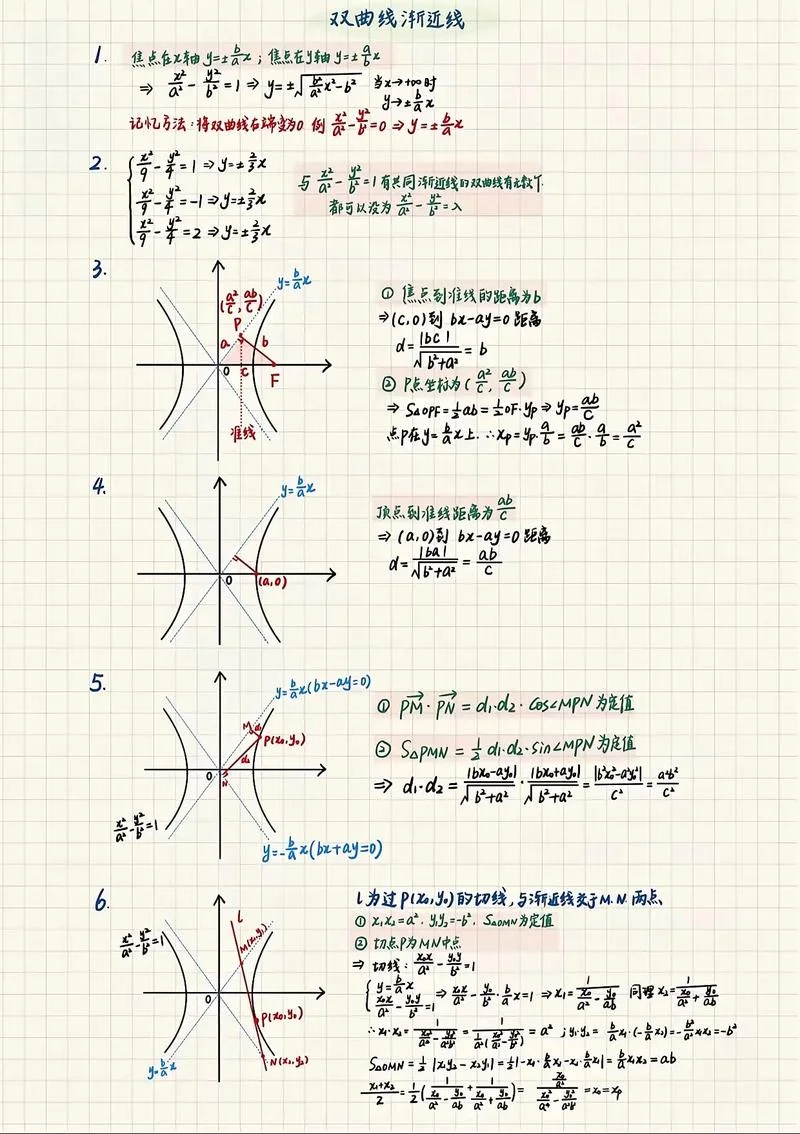 双曲线渐近线
1. 焦点在x轴 y=±b/a x ; 焦点在y轴 y=±a/b x
⇒ x²/a² - y²/b² = 1 ⇒ y=±√(b²/a² x²-b²) 当x→+∞时
y→±b/a x
记忆方法:将双曲线右端变为0 例 x²/a² - y²/b² = 0 ⇒ y=±b/a x
2. x²/9 - y²/4 = 1 ⇒ y=±2/3 x
x²/9 - y²/4 = -1 ⇒ y=±2/3 x
x²/9 - y²/4 = 2 ⇒ y=±2/3 x
与 x²/a² - y²/b² = 1 有共同渐近线的双曲线有无数个.
都可以设为 x²/a² - y²/b² = λ
3.
y=b/a x
(a²/c, ab/c)
P
a
b
O
c
F
准线
① 焦点到准线的距离为b
⇒ (c,0)到 bx-ay=0 距离
d=|bc|/√(b²+a²) = b
② P点坐标为(a²/c, ab/c)
⇒ S△OPF=½ab=½OF·yp ⇒ yp=ab/c
点P在y=b/a x上. ∴xp=yp·a/b=ab/c·a/b=a²/c
4.
y=b/a x
O
(a,0)
顶点到准线距离为ab/c
⇒ (a,0)到 bx-ay=0 距离
d=|ba|/√(b²+a²) = ab/c
5.
y=b/a x(bx-ay=0)
M
d₁
P(x₀,y₀)
d₂
O
N
x²/a² - y²/b² = 1
y=-b/a x(bx+ay=0)
① PM→·PN→ = d₁·d₂·cos∠MPN为定值
② S△PMN = ½ d₁·d₂·sin∠MPN为定值
⇒ d₁·d₂ = |bx₀-ay₀|/√(b²+a²) · |bx₀+ay₀|/√(b²+a²) = |b²x₀²-a²y₀²|/c² = a²b²/c²
6.
x²/a² - y²/b² = 1
l
M(x₁,y₁)
O
P(x₀,y₀)
N(x₂,y₂)
y=b/a x
l为过P(x₀,y₀)的切线,与渐近线交于M.N.两点
① x₁x₂=a². y₁y₂=-b². S△OMN为定值
② 切点P为MN中点
⇒ 切线: x₀x/a² - y₀y/b² = 1
{ y=b/a x
x₀x/a² - y₀y/b² = 1 ⇒ x₀x/a² - y₀/b²·b/a x=1 ⇒ x₁=1/(x₀/a² - y₀/ab) 同理x₂=1/(x₀/a² + y₀/ab)
∴ x₁·x₂ = 1/(x₀²/a⁴ - y₀²/a²b²) = 1/(1/a²(x₀²/a² - y₀²/b²)) = a² ; y₁·y₂ = b/a x₁·(-b/a x₂)=-b²/a² x₁x₂=-b²
S△OMN = ½ |x₁y₂-x₂y₁|=½|-x₁·b/a x₂-x₂·b/a x₁|=b/a x₁x₂=ab
(x₁+x₂)/2 = ½(1/(x₀/a² - y₀/ab) + 1/(x₀/a² + y₀/ab)) = (x₀/a²)/(x₀²/a⁴ - y₀²/a²b²) = x₀=xp